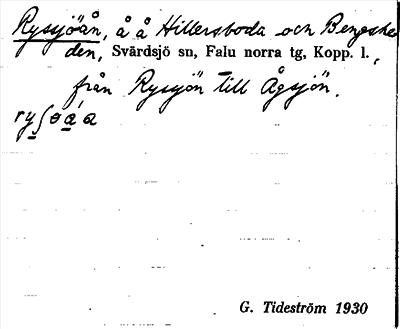 Rysjöån, å å Hillersboda och Bengshe
den, Svärdsjö sn, Falu norra tg, Kopp. l.,
från Rysjön till Ågsjön.
G. Tideström 1930